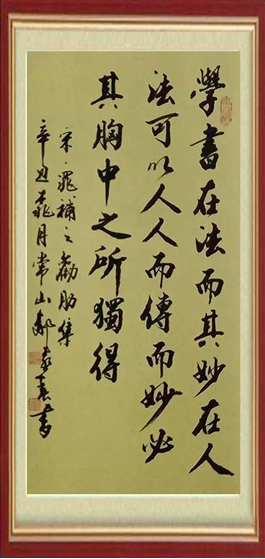 學書在法而其妙在人
法可以人人而傳而妙必
其胸中之所獨得
宋、晁補之雞肋集
辛丑月常山書